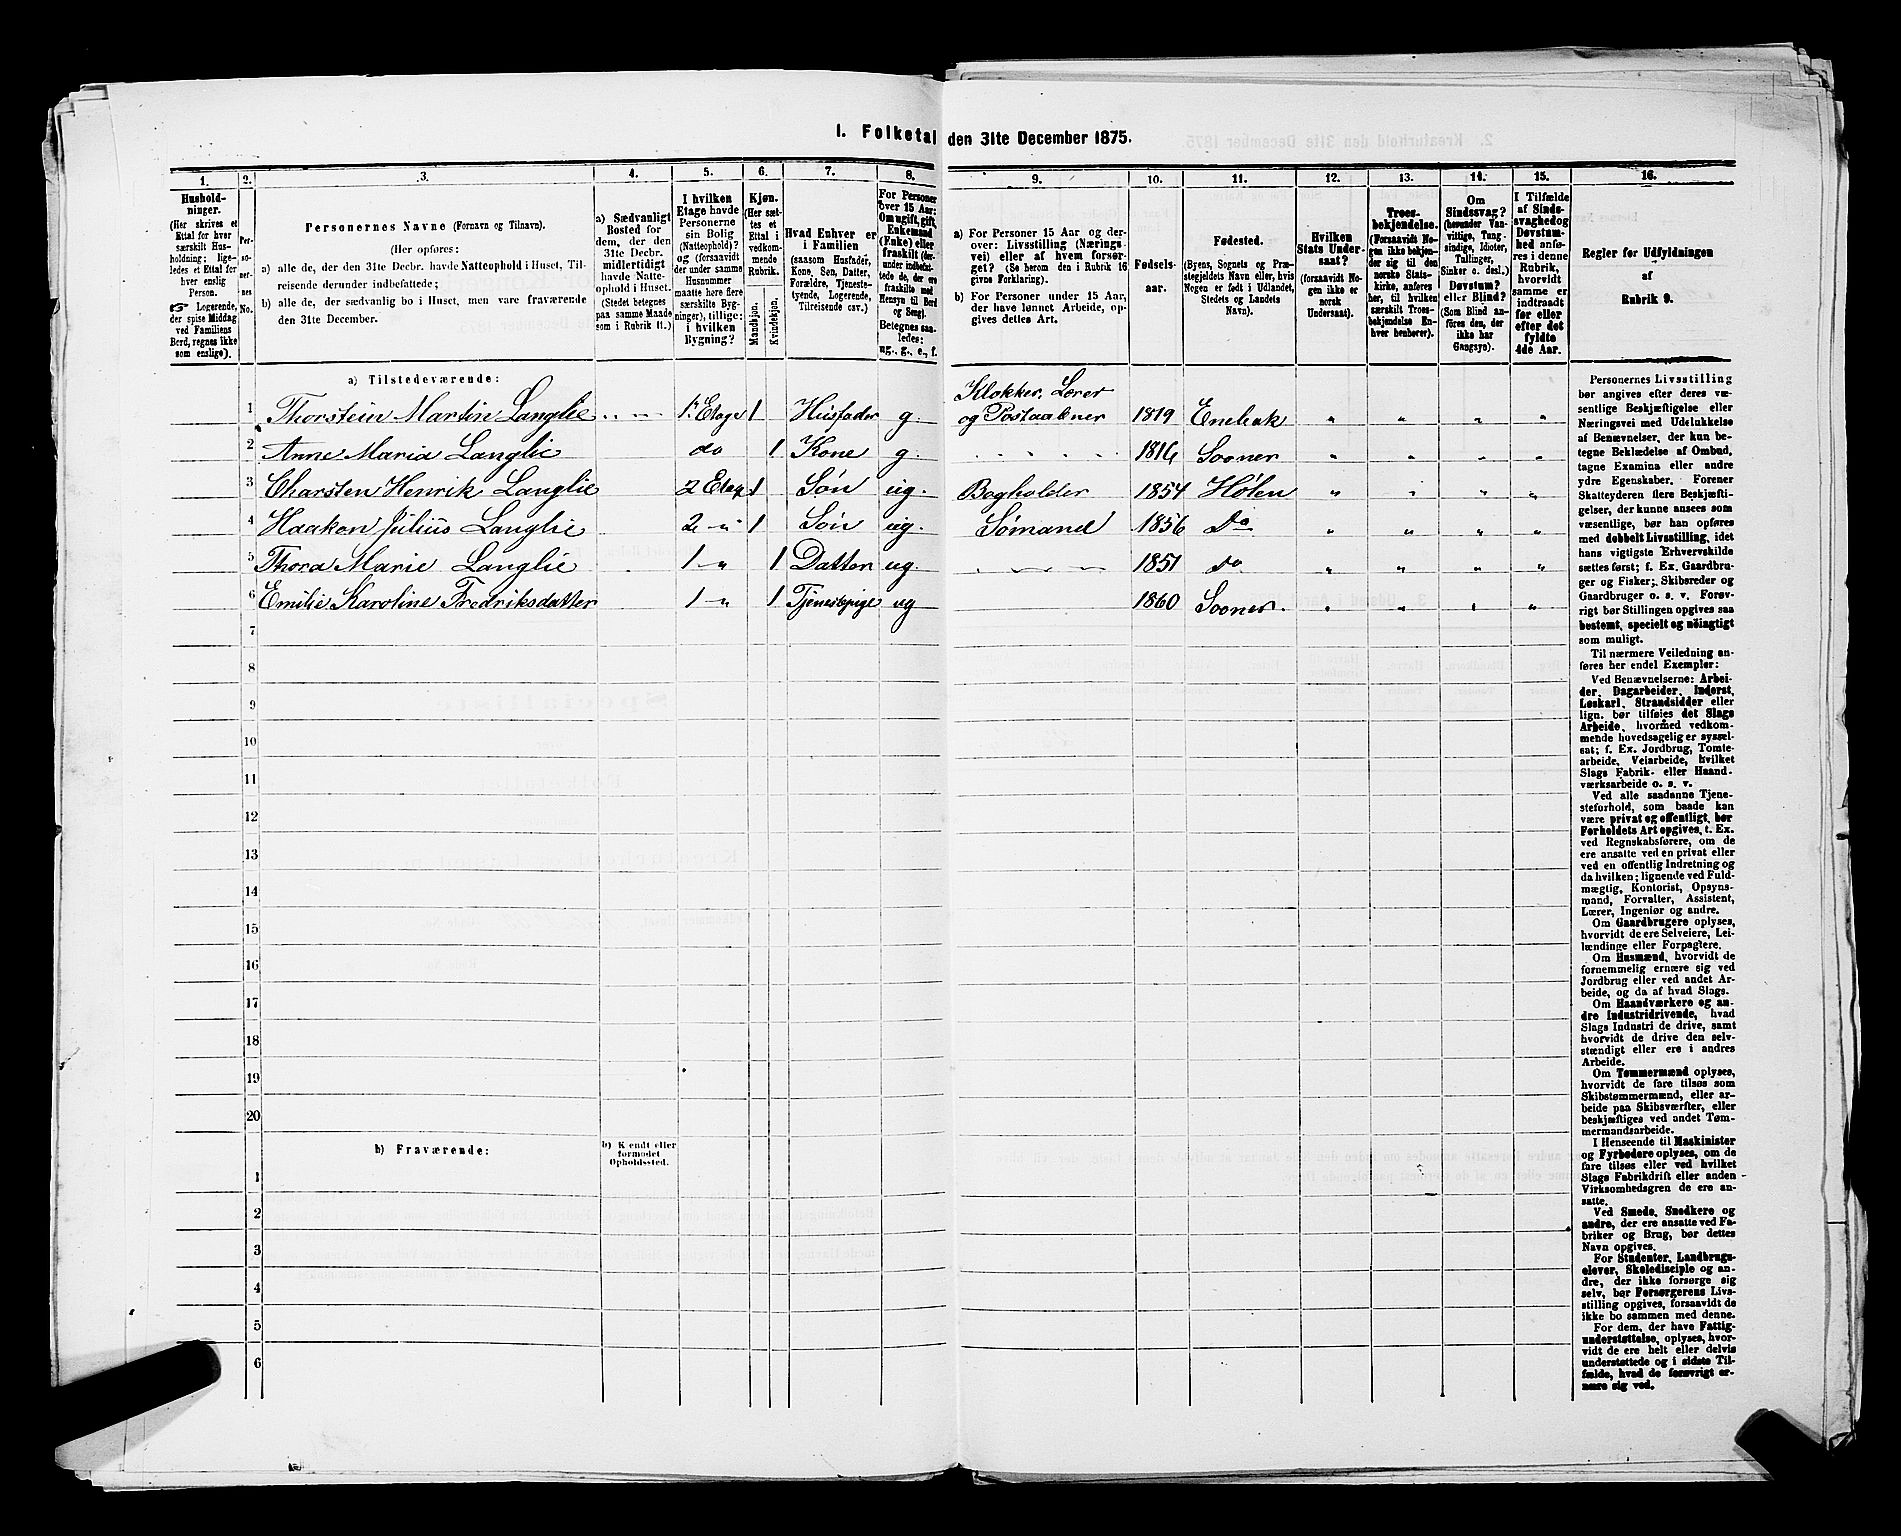 1. Folketal den 31te December 1875.
1. 2. 3. 4. 5. 6. 7. 8. 9. 10. 11. 12. 13. 14. 15. 16.
Hushold-
ninger.
(Her skrives et
Ettal for hver
særskilt Hus-
holdning; lige-
ledes et Ettal for
hver enslig
Person.
☞ Logerende,
der spise Middag
ved Familiens
Bord, regnes ikke
som enslige).
Per-
so-
ner-
nes
No.
Personernes Navne (Fornavn og Tilnavn).
(Her opføres:
a) alle de, der den 31te Decbr. havde Natteophold i Huset, Til-
reisende derunder indbefattede;
b) alle de, der sædvanlig bo i Huset, men vare fraværende
den 31te December.
a) Sædvanligt
Bosted for
dem, der den
31te Decbr.
midlertidigt
havde Natte-
ophold i Huset.
(Stedet betegnes
paa samme Maade
som i Rubrik 11.)
I hvilken
Etage havde
Personerne
sin Bolig
(Natteophold)?
og (forsaavidt
der under samme
Husnummer
maatte høre flere
særskilte Byg-
ninger), tillige:
i hvilken
Bygning?
Kjøn.
(Her sæt-
tes et
Ettal i
vedkom-
mende
Rubrik.
Mandkjøn.
Kvindekjøn.
Hvad Enhver er
i Familien
(saasom Husfader,
Kone, Søn, Datter,
Forældre, Tjeneste-
tyende, Logerende,
Tilreisende osv.)
For Personer
over 15 Aar:
Om ugift, gift,
Enkemand
(Enke) eller
fraskilt
Betegnes saa-
ledes:
ug., g., e., f.
a) For Personer 15 Aar og der-
over: Livsstilling (Nærings-
vei) eller af hvem forsør-
get? (Se herom den i Rubrik 16
givne Forklaring).
b) For Personer under 15 Aar,
der have lønnet Arbeide, op-
gives dettes Art.
Fødsels-
aar.
Fødested.
(Byens, Sognets og Præ-
stegjeldets Navn eller, hvis
Nogen er født i Udlandet,
Stedets og Landets
Navn).
Hvilken
Stats Under-
saat?
(forsaavidt No-
gen ikke er
norsk
Undersaat).
Troes-
bekjendelse.
(Forsaavidt No-
gen ikke bekjen-
der sig til den
norske Stats-
kirke, anføres
her, til hvilken
særskilt Troes-
bekjendelse En-
hver henhører).
Om
Sindssvag?
(herunder Van-
vittige, Tung-
sindige, Idioter,
Tullinger,
Sinker o. desl.)
Døvstum?
eller Blind?
(Som Blind an-
føres den, der
ikke har
Gangsyn).
I Tilfælde
af Sinds-
svaghed og
Døvstum-
hed anfø-
res i denne
Rubrik,
hvorvidt
samme er
indtraadt
før eller
efter det
fyldte
4de Aar.
Regler for Udfyldningen
af
Rubrik 9.
a) Tilstedeværende:
Klokker, Lærer
1 Thorstein Martin Langlie 1. Etage 1 Husfader g. og Postaabner 1819 Enebak " " " "
2 Anne Maria Langlie do 1 Kone g. 1816 Sooner " " " "
3 Charsten Henrik Langlie 2 Etag 1 Søn ug. Bogholder 1854 Hølen " " " "
4 Haakon Julius Langlie 2 " 1 Søn ug. Sømand 1856 do " " " "
5 Thora Marie Langlie 1 " 1 Datter ug. 1851 do " " " "
6 Emilie Karoline Fredriksdatter 1 " 1 Tjenestepige ug 1860 Sooner. " " " "
7
8
9
10
11
12
13
14
15
16
17
18
19
20
b) Fraværende:
b) Kjendt eller
formodet
Opholdssted.
1
2
3
4
5
6
Personernes Livsstilling
bør angives efter deres væ-
sentlige Beskjæftigelse eller
Næringsvei med Udelukkelse
af Benævnelser, der kun be-
tegne Beklædelse af Ombud,
tagne Examina eller andre
ydre Egenskaber. Forener
Skatteyderen flere Beskjæfti-
gelser, der kunne ansees som
væsentlige, bør han opføres
med dobbelt Livsstilling, idet
hans vigtigste Erhvervskilde
sættes først; f. Ex. Gaardbru-
ger og Fisker; Skibsreder og
Gaardbruger o. s. v. Forøv-
rigt bør Stillingen opgives saa
bestemt, specielt og nøiagtigt
som muligt.
Til nærmere Veiledning an-
føres her endel Exempler:
Ved Benævnelserne: Arbei-
der, Dagarbeider, Inderst,
Løskarl, Strandsidder eller
lign. bør tilføies det Slags
Arbeide, hvormed vedkom-
mende hovedsagelig er syssel-
sat; f. Ex. Jordbrug, Tomte-
arbeide, Veiarbeide, hvilket
Slags Fabrik- eller Haand-
værksarbeide o. s. v.
Ved alle saadanne Tjene-
steforhold, som baade kan
være privat og offentligt, bør
Forholdets Art opgives, t. Ex.
ved Regnskabsførere, om de
ere ansatte ved en privat eller
ved en offentlig Indretning og
da hvilken; lignende ved Fuld-
mægtig, Kontorist, Opsyns-
mand, Forvalter, Assistent,
Lærer, Ingeniør og andre.
Om Gaardbrugere oplyses,
hvorvidt de ere Selveiere, Lei-
lændinge eller Forpagtere.
Om Husmænd, hvorvidt de
fornemmelig ernære sig ved
Jordbrug eller ved andet Ar-
beide, og da af hvad Slags.
Om Haandværkere og an-
dre Industridrivende, hvad
Slags Industri de drive, samt
hvorvidt de drive den selv-
stændigt eller ere i andres
Arbeide.
Om Tømmermænd oplyses,
hvorvidt de fare tilsøs som
Skibstømmermænd, eller ar-
beide paa Skibsværfter, eller
beskjæftiges ved andet Tøm-
mermandsarbeide.
I Henseende til Maskinister
og Fyrbødere oplyses, om de
fare tilsøs eller ved hvilket
Slags Fabrikdrift eller anden
Virksomhedsgren de ere an-
satte.
Ved Smede, Snedkere og
andre, der ere ansatte ved Fa-
briker og Brug, bør dettes
Navn opgives.
For Studenter, Landbrugs-
elever, Skoledisciple og an-
dre, der ikke forsørge sig
selv, bør Forsørgerens Livs-
stilling opgives, forsaavidt de
ikke bo sammen med denne.
For dem, der have Fattig-
understøttelse, oplyses, hvor-
vidt de ere helt eller delvis
understøttede og i sidste Til-
fælde, hvad de forøvrigt er-
nære sig ved.